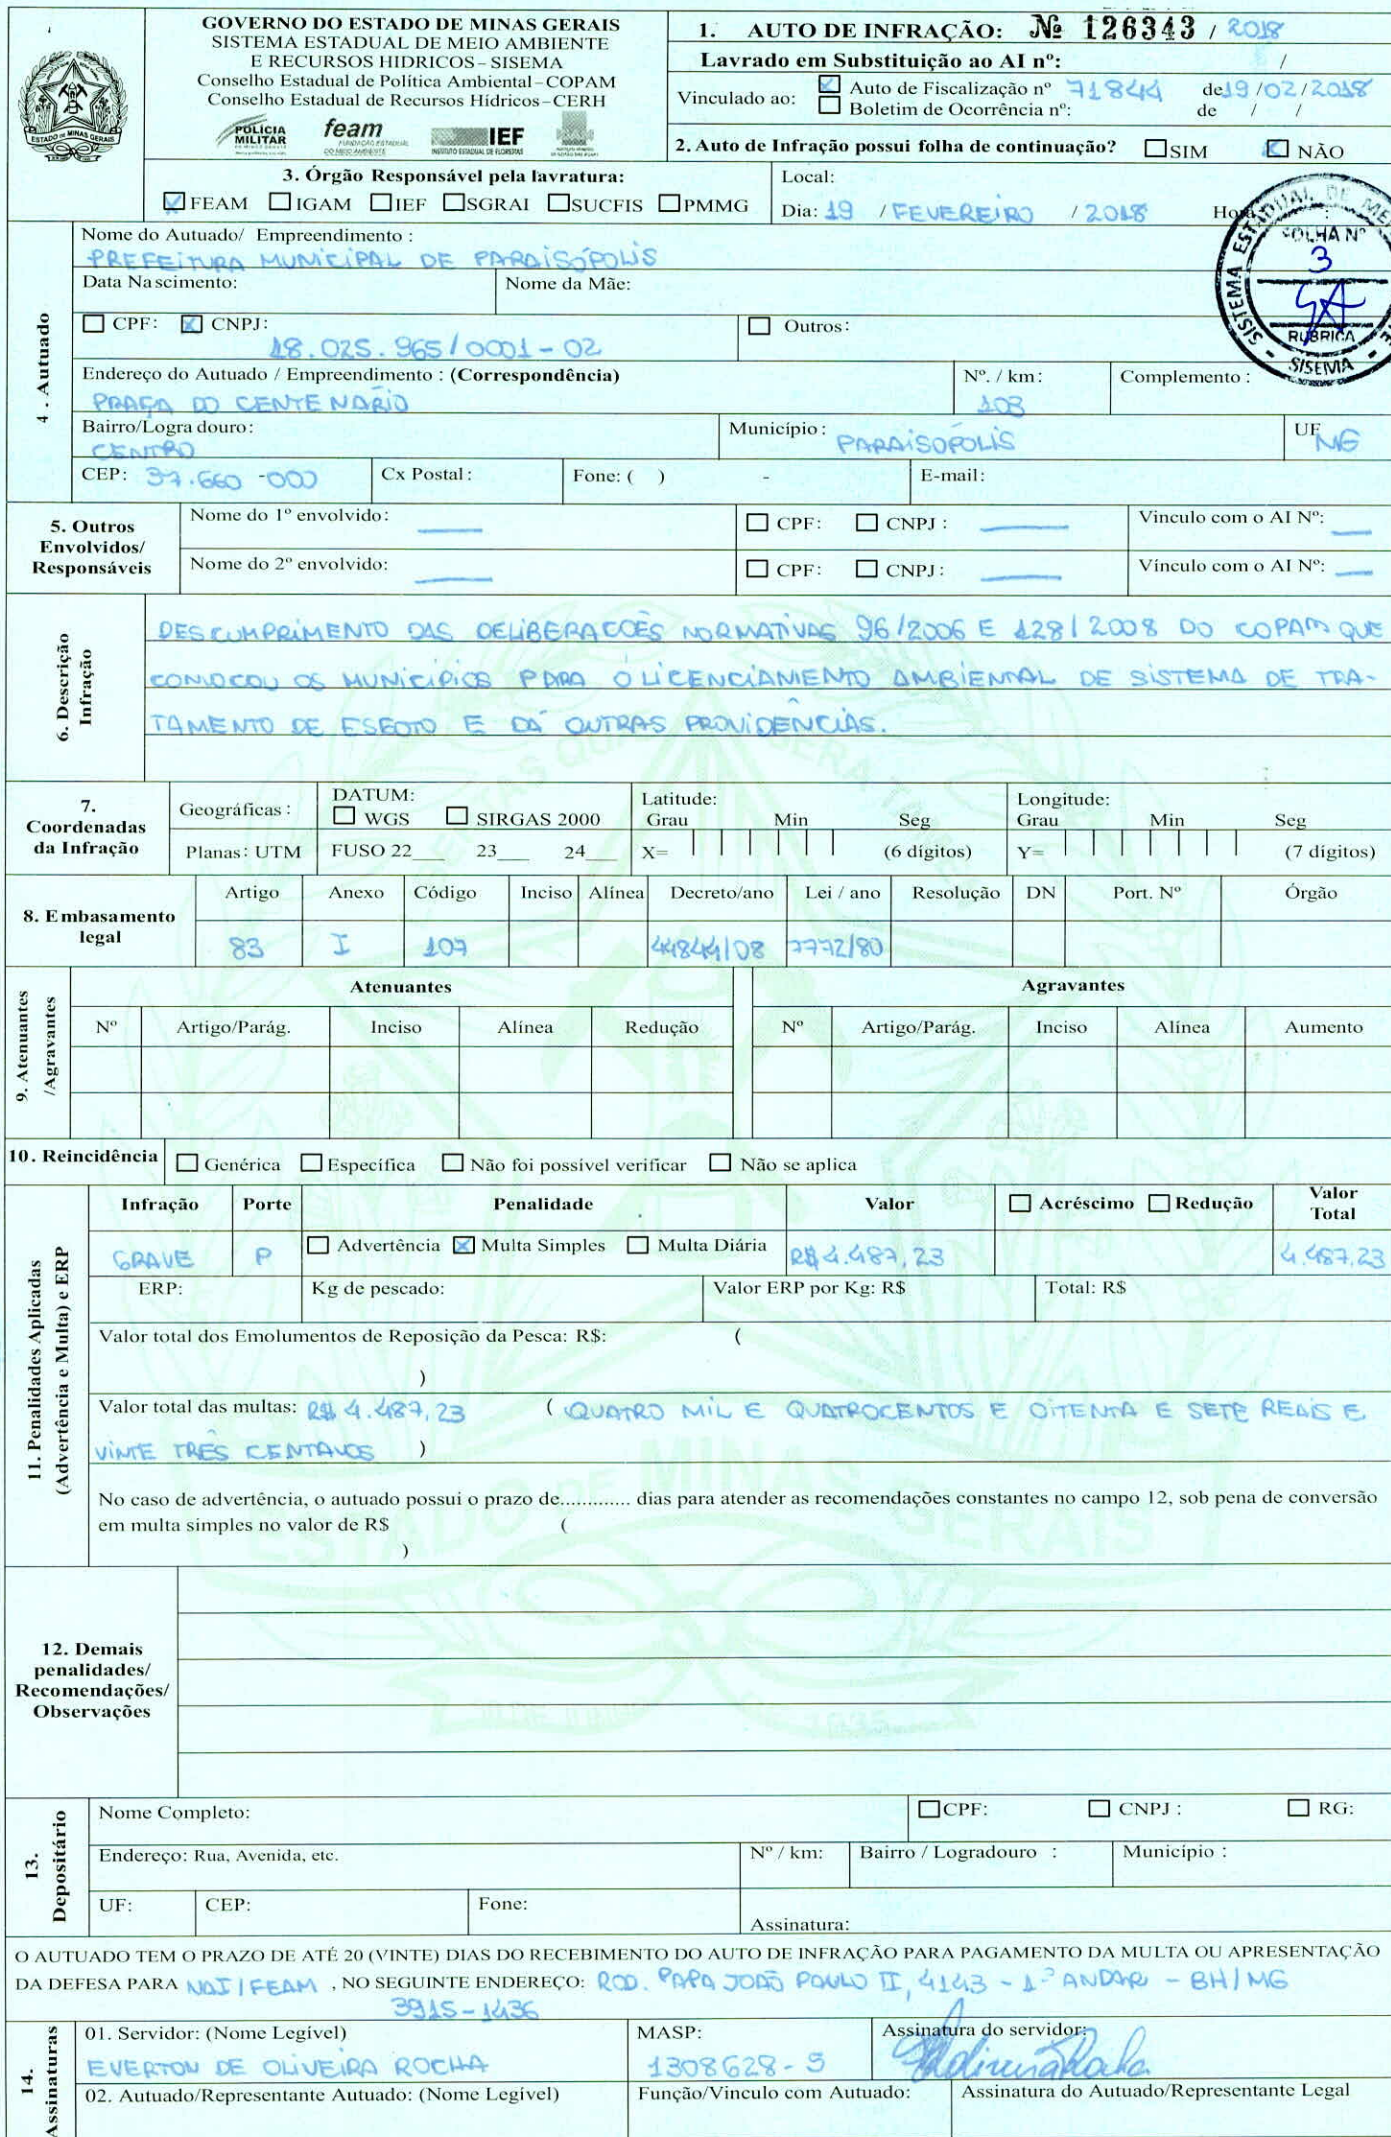 GOVERNO DO ESTADO DE MINAS GERAIS
SISTEMA ESTADUAL DE MEIO AMBIENTE
E RECURSOS HIDRICOS – SISEMA
Conselho Estadual de Política Ambiental – COPAM
Conselho Estadual de Recursos Hídricos – CERH
ESTADO DE MINAS GERAIS
POLÍCIA MILITAR
feam
FUNDAÇÃO ESTADUAL DO MEIO AMBIENTE
IEF
INSTITUTO ESTADUAL DE FLORESTAS
1. AUTO DE INFRAÇÃO: Nº 126343 / 2018
Lavrado em Substituição ao AI nº: /
Vinculado ao: Auto de Fiscalização nº 71844 de 19/02/2018
Boletim de Ocorrência nº: de / /
2. Auto de Infração possui folha de continuação? SIM NÃO
3. Órgão Responsável pela lavratura:
FEAM IGAM IEF SGRAI SUCFIS PMMG
Local:
Dia: 19 / FEVEREIRO / 2018 Hora :
FOLHA Nº
3
RUBRICA
SISEMA
4. Autuado
Nome do Autuado/ Empreendimento :
PREFEITURA MUNICIPAL DE PARAISÓPOLIS
Data Nascimento: Nome da Mãe:
CPF: CNPJ: Outros:
18.025.965/0001-02
Endereço do Autuado / Empreendimento : (Correspondência) Nº. / km: Complemento :
PRAÇA DO CENTENÁRIO 103
Bairro/Logra douro: Município : PARAISÓPOLIS UF MG
CENTRO
CEP: 37.660-000 Cx Postal : Fone: ( ) - E-mail:
5. Outros Envolvidos/ Responsáveis
Nome do 1º envolvido: CPF: CNPJ : Vinculo com o AI Nº:
Nome do 2º envolvido: CPF: CNPJ : Vínculo com o AI Nº:
6. Descrição Infração
DESCUMPRIMENTO DAS DELIBERACOES NORMATIVAS 96/2006 E 128/2008 DO COPAM QUE
CONVOCOU OS MUNICÍPIOS PARA O LICENCIAMENTO AMBIENTAL DE SISTEMA DE TRA-
TAMENTO DE ESGOTO E DÁ OUTRAS PROVIDÊNCIAS.
7. Coordenadas da Infração
Geográficas : DATUM: WGS SIRGAS 2000 Latitude: Grau Min Seg Longitude: Grau Min Seg
Planas: UTM FUSO 22 23 24 X= (6 dígitos) Y= (7 dígitos)
8. Embasamento legal
Artigo Anexo Código Inciso Alínea Decreto/ano Lei / ano Resolução DN Port. Nº Órgão
83 I 107 44844/08 7772/80
9. Atenuantes /Agravantes
Atenuantes Agravantes
Nº Artigo/Parág. Inciso Alínea Redução Nº Artigo/Parág. Inciso Alínea Aumento
10. Reincidência Genérica Específica Não foi possível verificar Não se aplica
11. Penalidades Aplicadas (Advertência e Multa) e ERP
Infração Porte Penalidade Valor Acréscimo Redução Valor Total
GRAVE P Advertência Multa Simples Multa Diária R$ 4.487,23 4.487,23
ERP: Kg de pescado: Valor ERP por Kg: R$ Total: R$
Valor total dos Emolumentos de Reposição da Pesca: R$: (
)
Valor total das multas: R$ 4.487,23 ( QUATRO MIL E QUATROCENTOS E OITENTA E SETE REAIS E
VINTE TRÊS CENTAVOS )
No caso de advertência, o autuado possui o prazo de............. dias para atender as recomendações constantes no campo 12, sob pena de conversão
em multa simples no valor de R$ (
)
12. Demais penalidades/ Recomendações/ Observações
13. Depositário
Nome Completo: CPF: CNPJ : RG:
Endereço: Rua, Avenida, etc. Nº / km: Bairro / Logradouro : Município :
UF: CEP: Fone: Assinatura:
O AUTUADO TEM O PRAZO DE ATÉ 20 (VINTE) DIAS DO RECEBIMENTO DO AUTO DE INFRAÇÃO PARA PAGAMENTO DA MULTA OU APRESENTAÇÃO
DA DEFESA PARA NAI/FEAM , NO SEGUINTE ENDEREÇO: ROD. PAPA JOÃO PAULO II, 4143 - 1º ANDAR - BH/MG
3915-1436
14. Assinaturas
01. Servidor: (Nome Legível) MASP: Assinatura do servidor:
EVERTON DE OLIVEIRA ROCHA 1308628-5
02. Autuado/Representante Autuado: (Nome Legível) Função/Vinculo com Autuado: Assinatura do Autuado/Representante Legal